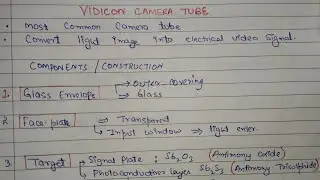 VIDICON CAMERA TUBE
• most Common Camera tube
• Convert light image into electrical video signal.
COMPONENTS / CONSTRUCTION
1. Glass Envelope → Outer covering
→ Glass
2 Face plate ⇒ Transparent
→ Input window ⇒ light enter.
3 Target → Signal Plate : Sb2O3 (Antimony Oxide)
→ Photoconduction layer Sb2S3 (Antimony Trisulphide)